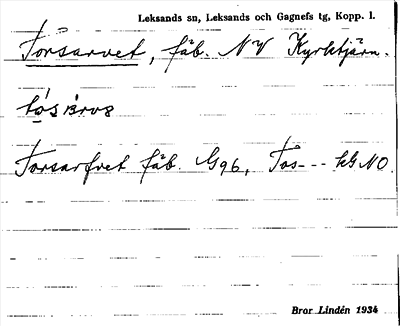 Leksands sn, Leksands och Gagnefs tg, Kopp. l.
Torsarvet, fäb. NV Kyrktjärn.
Torsarfvet fäb. G96, Tos--- hG NO.
Bror Lindén 1934